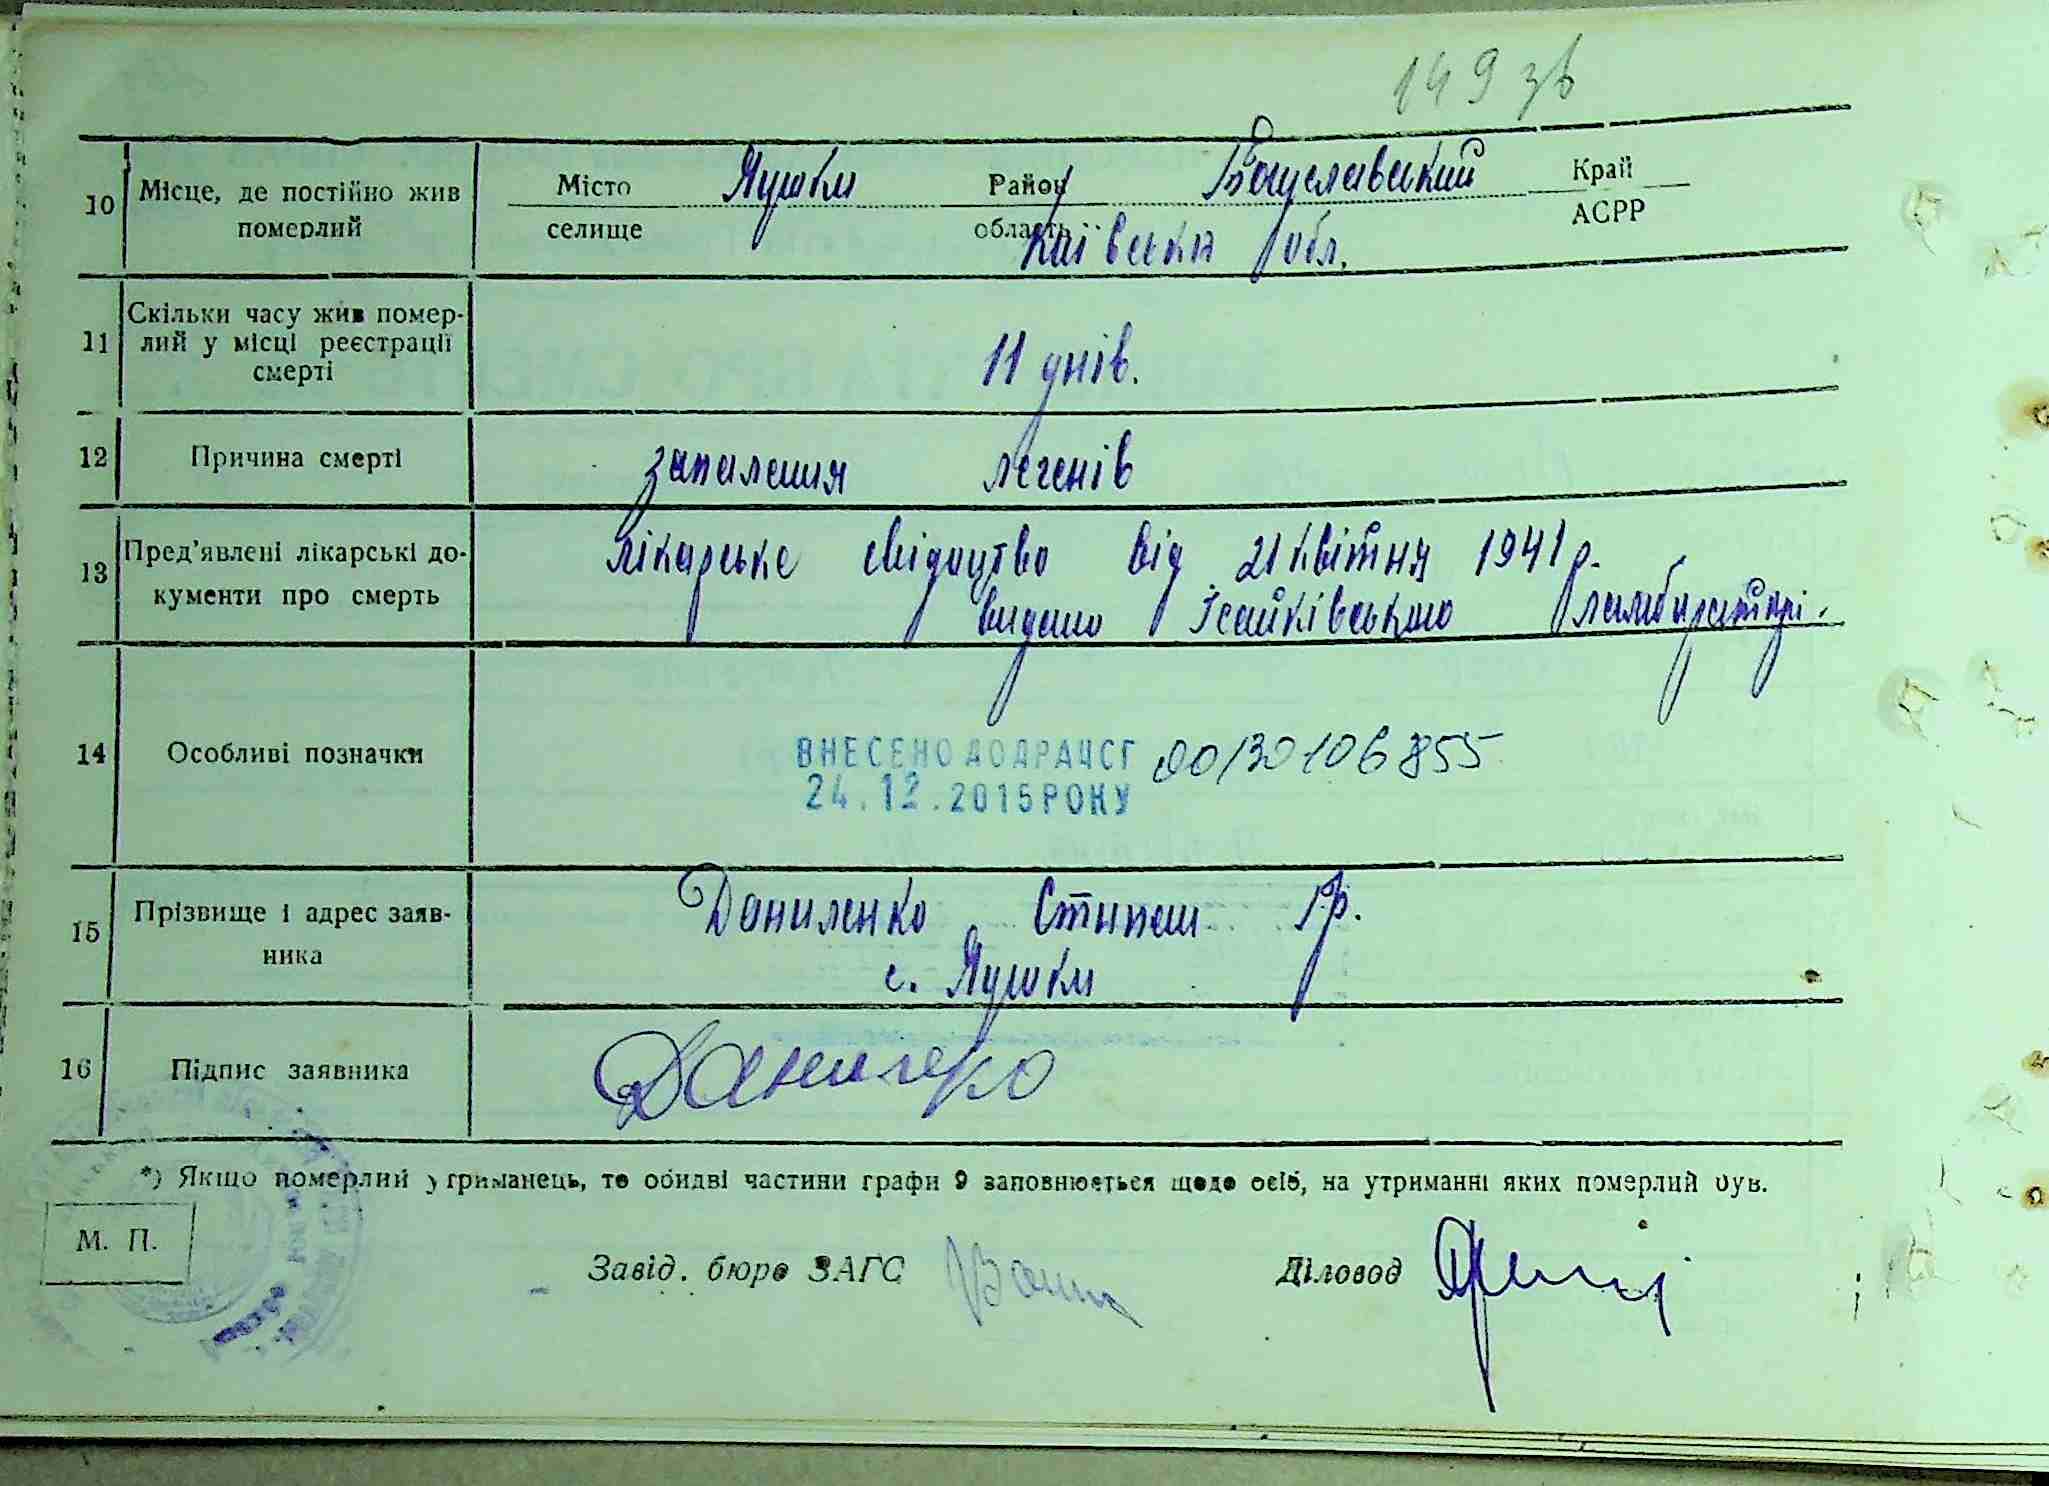 149 зв
10 Місце, де постійно жив померлий
Місто селище Яцюки Район область Богуславський Край АСРР
Київська обл.
11 Скільки часу жив померлий у місці реєстрації смерті
11 днів.
12 Причина смерті
запалення легенів
13 Пред'явлені лікарські документи про смерть
лікарське свідоцтво від 21 квітня 1941 р.
видано Ісайківською
14 Особливі позначки
ВНЕСЕНО ДО ДРАЦСГ 00130106855
24.12.2015 РОКУ
15 Прізвище і адрес заявника
Даниленко Степан Гр.
с.
16 Підпис заявника
*) Якщо померлий утриманець, то обидві частини графи 9 заповнюється щодо осіб, на утриманні яких померлий був.
М. П.
Завід. бюро ЗАГС Діловод